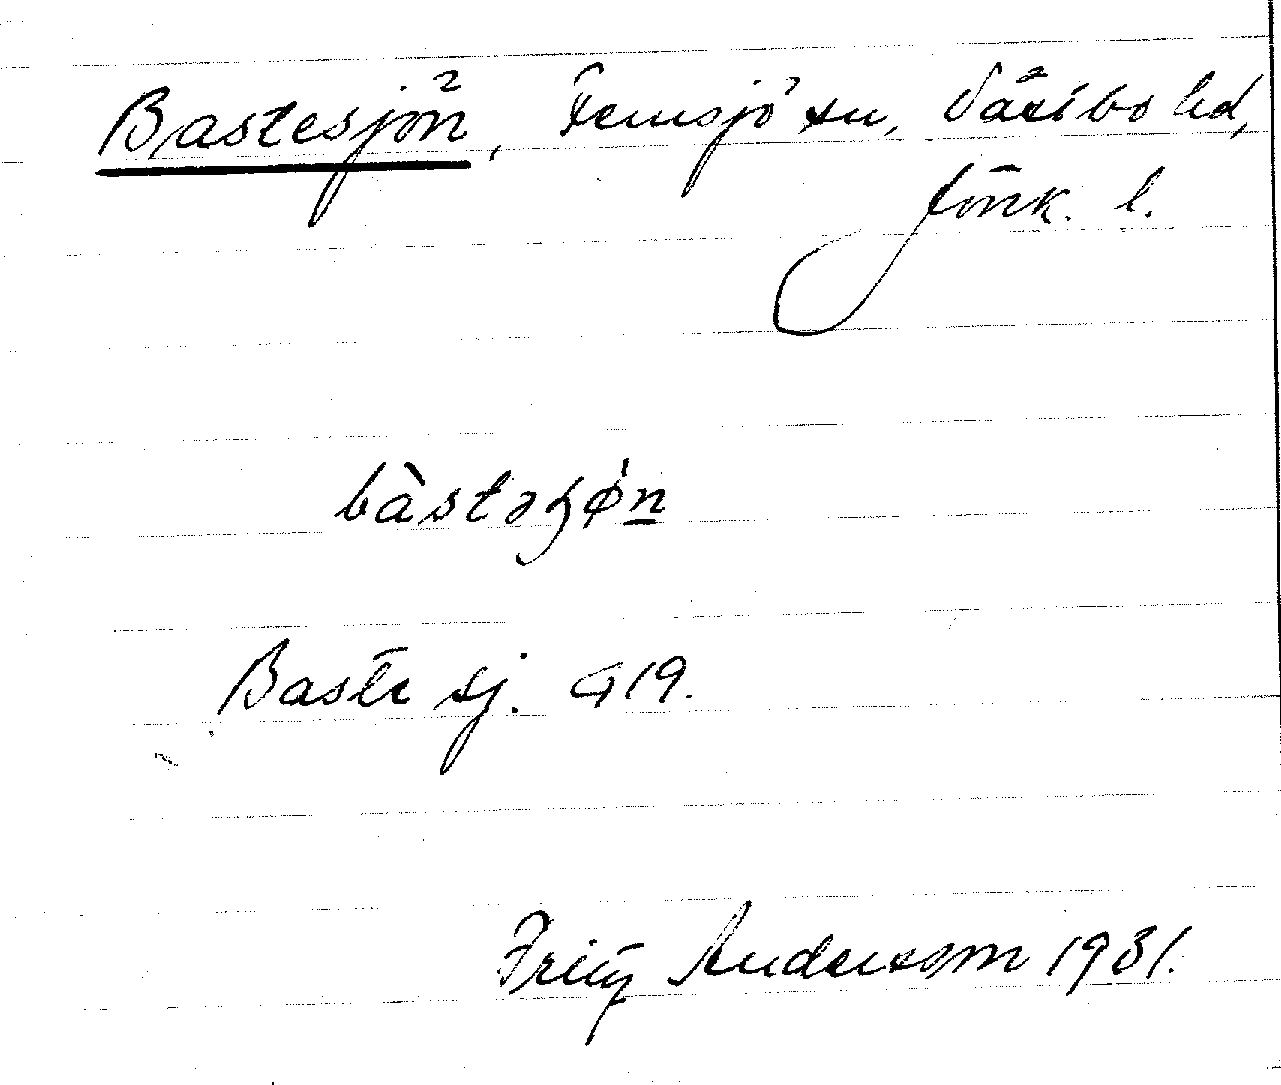 Bastesjön, Femsjö sn, Västbo hd,
Jönk. l.
bàstəɧøn
Baste sj. G19.
Fritz Andersson 1931.